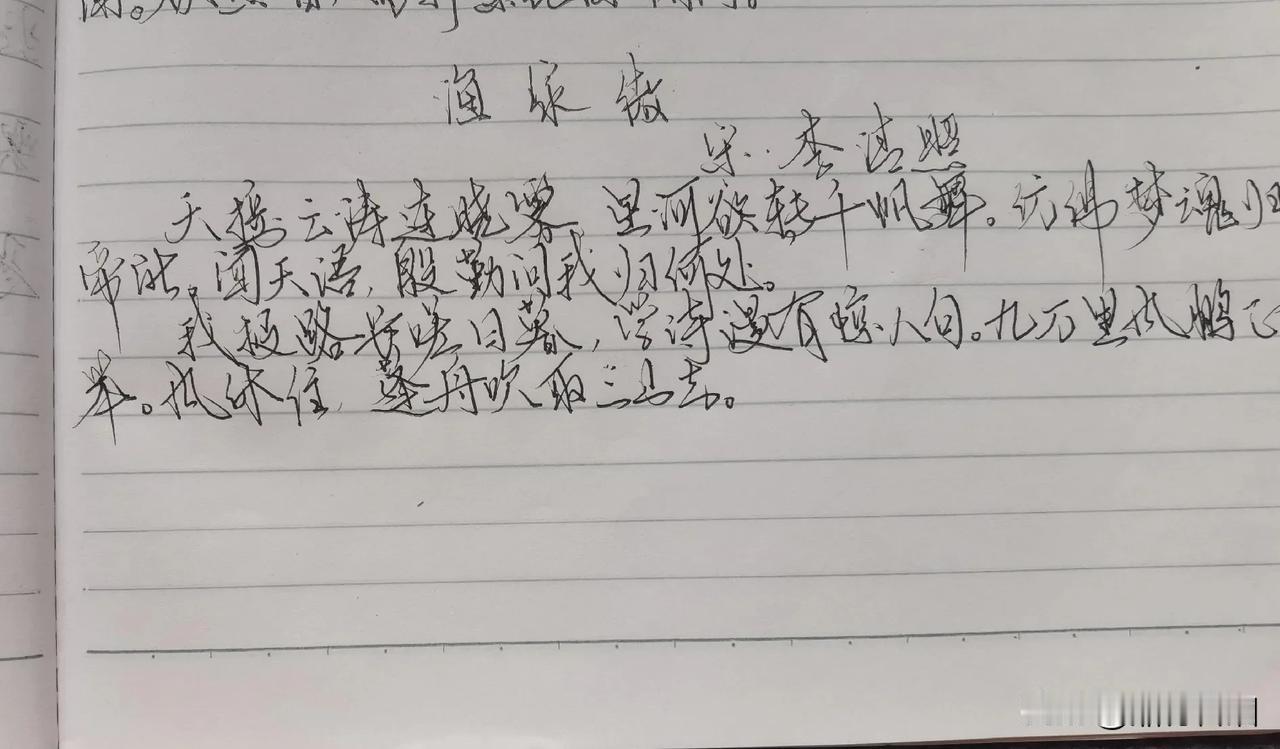 渔家傲
宋·李清照
天接云涛连晓雾,星河欲转千帆舞。仿佛梦魂归
帝所。闻天语,殷勤问我归何处。
我报路长嗟日暮,学诗漫有惊人句。九万里风鹏正
举。风休住,蓬舟吹取三山去。